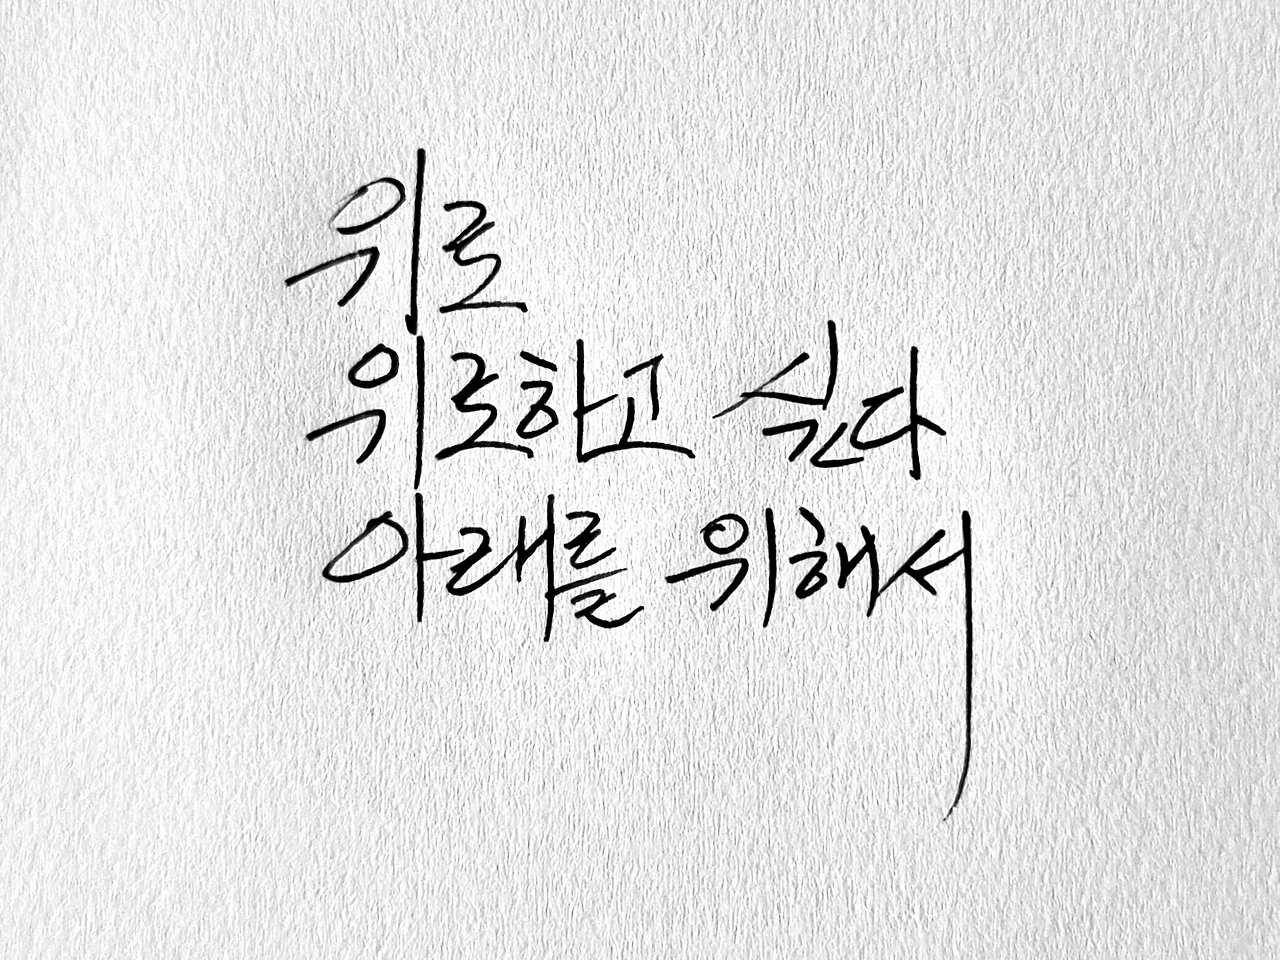 위로
위로하고 싶다
아래를 위해서